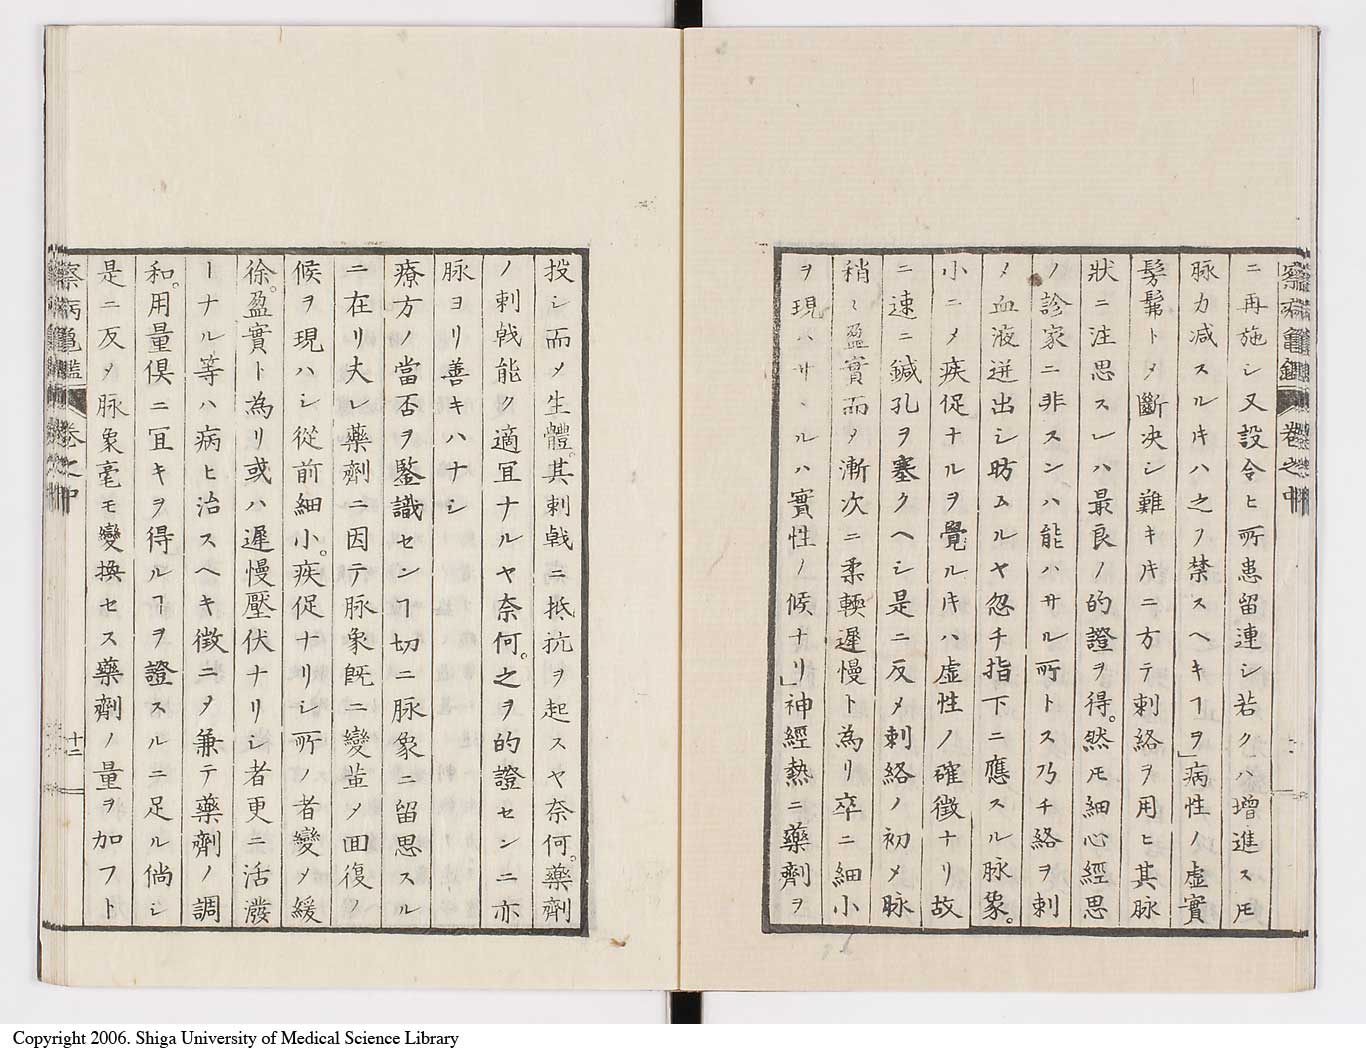 察病龜鑑 卷之中
ニ再施シ又設令ヒ所患留連シ若クハ増進スㇳモ
脉力減スルㇳキハ之ヲ禁スヘキヿヲ」病性ノ虚實
髣髴トメ斷决シ難キㇳキニ方テ刺絡ヲ用ヒ其脉
狀ニ注思スレハ最良ノ的證ヲ得。然ㇳモ細心經思
ノ診家ニ非スンハ能ハサル所トス乃チ絡ヲ刺
メ血液迸出シ昉ムルヤ忽チ指下ニ應スル脉象。
小ニメ疾促ナルヲ覺ルㇳキハ虚性ノ確徴ナリ故
ニ速ニ鍼孔ヲ塞クヘシ是ニ反メ刺絡ノ初メ脉
稍〻盈實而メ漸次ニ柔輭遲慢ト為リ卒ニ細小
ヲ現ハサヽルハ實性ノ候ナリ」神經熱ニ藥劑ヲ
投シ而メ生體。其刺戟ニ抵抗ヲ起スヤ奈何。藥劑
ノ刺戟能ク適宜ナルヤ奈何。之ヲ的證センニ亦
脉ヨリ善キハナシ
療方ノ當否ヲ鑒識センヿ切ニ脉象ニ留思スル
ニ在リ夫レ藥劑ニ因テ脉象既ニ變革メ回復ノ
候ヲ現ハシ從前細小。疾促ナリシ所ノ者變メ緩
徐。盈實ト為リ或ハ遲慢壓伏ナリシ者更ニ活潑
ーナル等ハ病ヒ治スヘキ徴ニメ兼テ藥劑ノ調
和。用量俱ニ宜キヲ得ルヿヲ證スルニ足ル倘シ
是ニ反メ脉象毫モ變換セス藥劑ノ量ヲ加フト
察病龜鑑 卷之中
十二
Copyright 2006. Shiga University of Medical Science Library